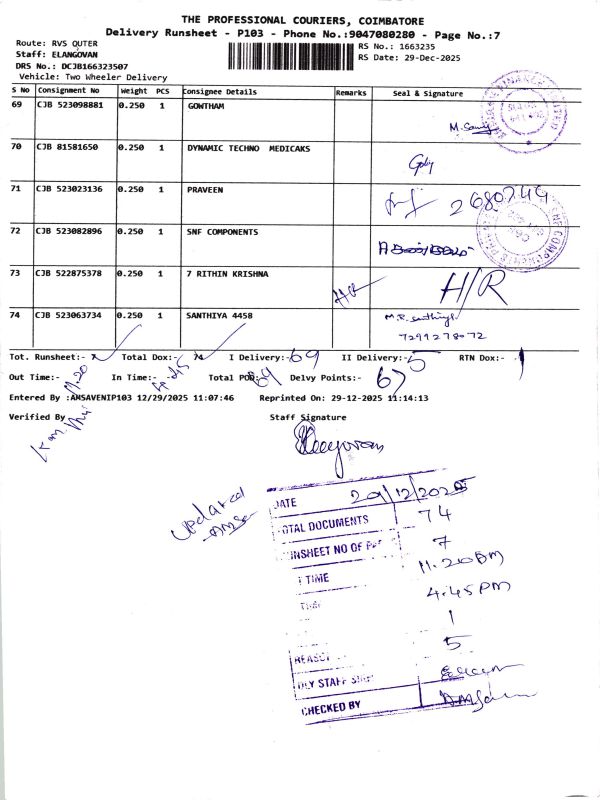 THE PROFESSIONAL COURIERS, COIMBATORE
Delivery Runsheet - P103 - Phone No.:9047080280 - Page No.:7
Route: RVS OUTER
RS No.: 1663235
Staff: ELANGOVAN
RS Date: 29-Dec-2025
DRS No.: DCJB166323507
Vehicle: Two Wheeler Delivery
S No Consignment No Weight PCS Consignee Details Remarks Seal & Signature
69 CJB 523098881 0.250 1 GOWTHAM
70 CJB 81581650 0.250 1 DYNAMIC TECHNO MEDICAKS
71 CJB 523023136 0.250 1 PRAVEEN 2680744
72 CJB 523082896 0.250 1 SNF COMPONENTS
73 CJB 522875378 0.250 1 7 RITHIN KRISHNA HR H/R
74 CJB 523063734 0.250 1 SANTHIYA 4458 M.R. santhiya
7299278072
Tot. Runsheet:- 7 Total Dox:- 74 I Delivery:- 69 II Delivery:- 5 RTN Dox:- 1
Out Time:- 11.20 In Time:- Total POD:- 69 Delvy Points:- 67
Entered By :AMSAVENIP103 12/29/2025 11:07:46 Reprinted On: 29-12-2025 11:14:13
Verified By Staff Signature
Updated
DATE 29/12/2025
TOTAL DOCUMENTS 74
RUNSHEET NO OF 7
TIME 11.20 AM
4.45 PM
1
5
DLY STAFF
CHECKED BY